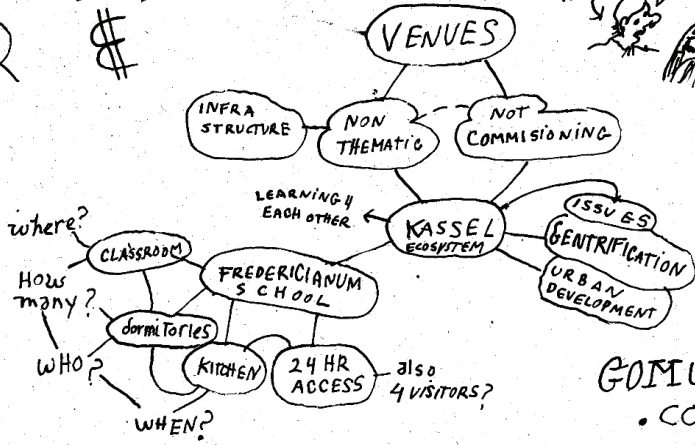 $
VENUES
INFRA
STRUCTURE
NON
THEMATIC
NOT
COMMISIONING
LEARNING 4
EACH OTHER
KASSEL
ECOSYSTEM
ISSUES
GENTRIFICATION
URBAN
DEVELOPMENT
where?
CLASSROOM
FREDERICIANUM
SCHOOL
How
many?
dormitories
WHO?
KITCHEN
24 HR
ACCESS
also
4 VISITORS?
WHEN?